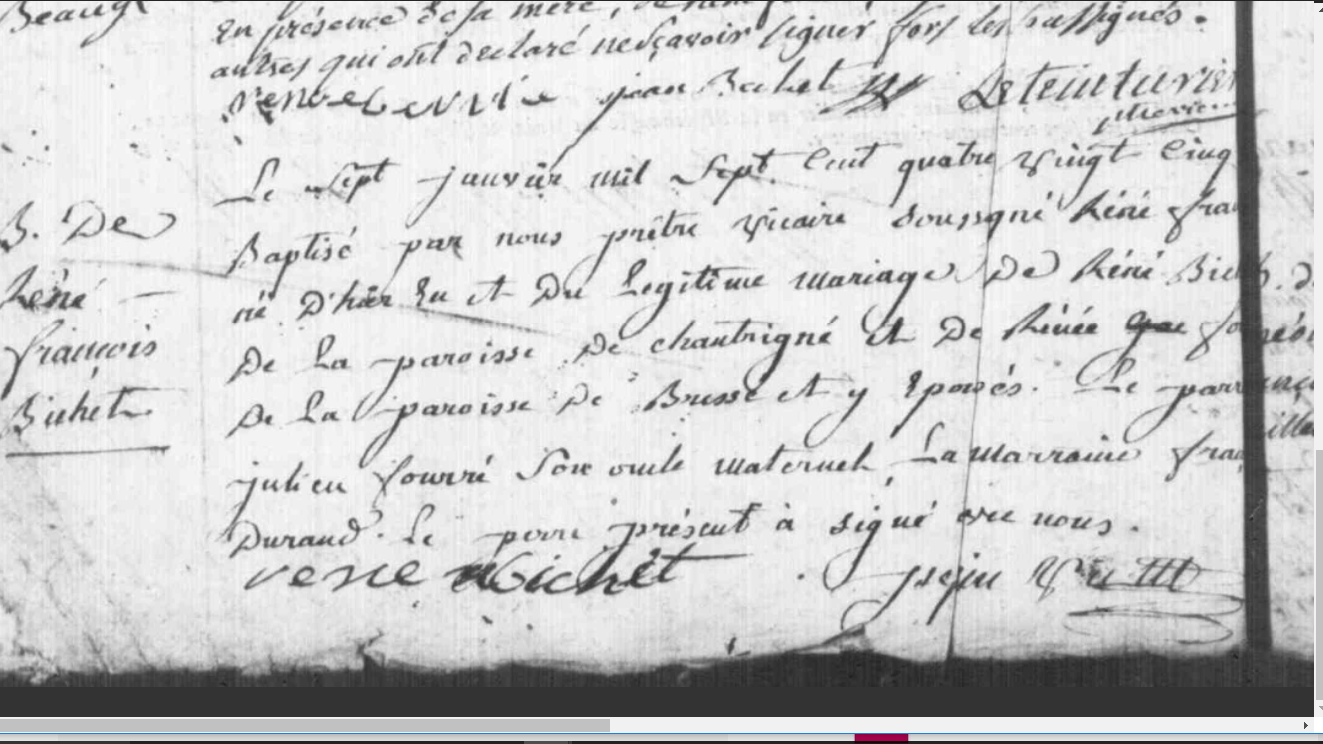 Beaug
en présence de sa mere, de
autres qui ont declaré ne sçavoir signer fors les sousignés.
jean Bichet Leteinturier
B. De
René
françois
Bichet
Le Sept janvier mil Sept Cent quatre vingt Cinq
Baptisé par nous prêtre vicaire soussigné Réné fran
né D'hier Eu et Du Legitime mariage De Réné Bich
De La paroisse De chantrigné et De Rénée fo
De La paroisse De Brusse et y Epousés. Le parr
julien fourré Son oncle maternel, La Marraine fran
Durand. Le perre présent à signé avec nous.
rene Bichet